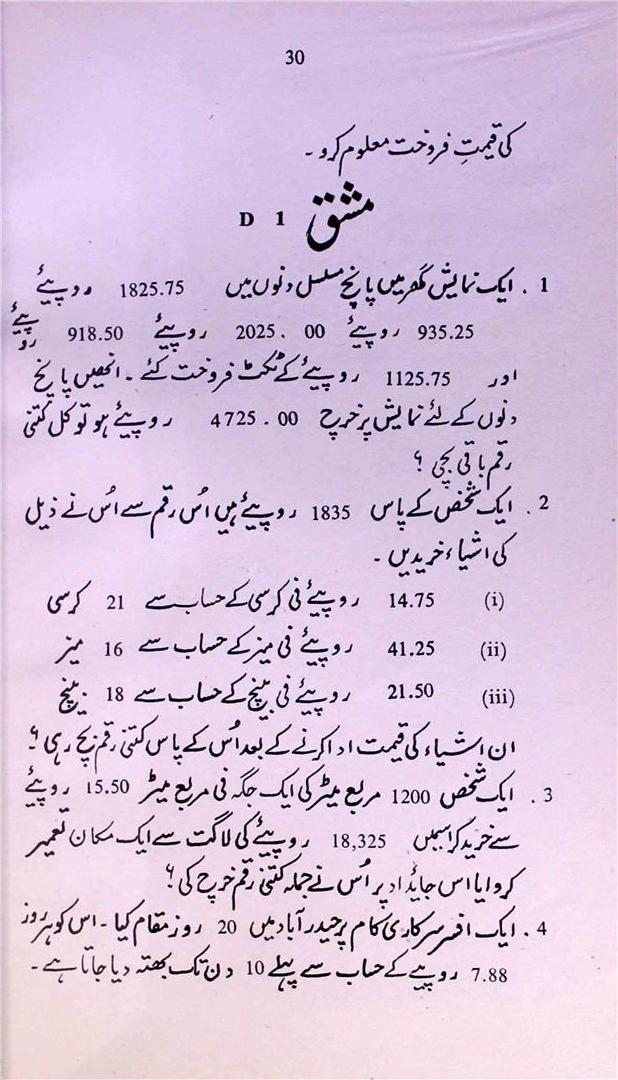 30
کی قیمتِ فروخت معلوم کرو ۔
مشق 1 D
1 . ایک نمایش گھر میں پانچ مسلسل دنوں میں 1825.75 روپیئے
935.25 روپیئے 2025.00 روپیئے 918.50 روپیئے
اور 1125.75 روپیئے کے ٹکٹ فروخت کئے ۔ انھیں پانچ
دنوں کے لئے نمایش پر خرچ 4725.00 روپیئے ہو تو کل کتنی
رقم باقی بچی ؟
2 . ایک شخص کے پاس 1835 روپیئے ہیں اُس رقم سے اُس نے ذیل
کی اشیاء خریدیں ۔
(i) 14.75 روپیئے فی کرسی کے حساب سے 21 کرسی
(ii) 41.25 روپیئے فی میز کے حساب سے 16 میز
(iii) 21.50 روپیئے فی بینچ کے حساب سے 18 بینچ
ان اشیاء کی قیمت ادا کرنے کے بعد اُس کے پاس کتنی رقم بچ رہی ؟
3 . ایک شخص 1200 مربع میٹر کی ایک جگہ فی مربع میٹر 15.50 روپیئے
سے خرید کر اسمیں 18,325 روپیئے کی لاگت سے ایک مکان تعمیر
کروایا اس جایداد پر اُس نے جملہ کتنی رقم خرچ کی ؟
4 . ایک افسر سرکاری کام پر حیدرآباد میں 20 روز مقام کیا ۔ اس کو ہر روز
7.88 روپیے کے حساب سے پہلے 10 دن تک بھتہ دیا جاتا ہے ۔